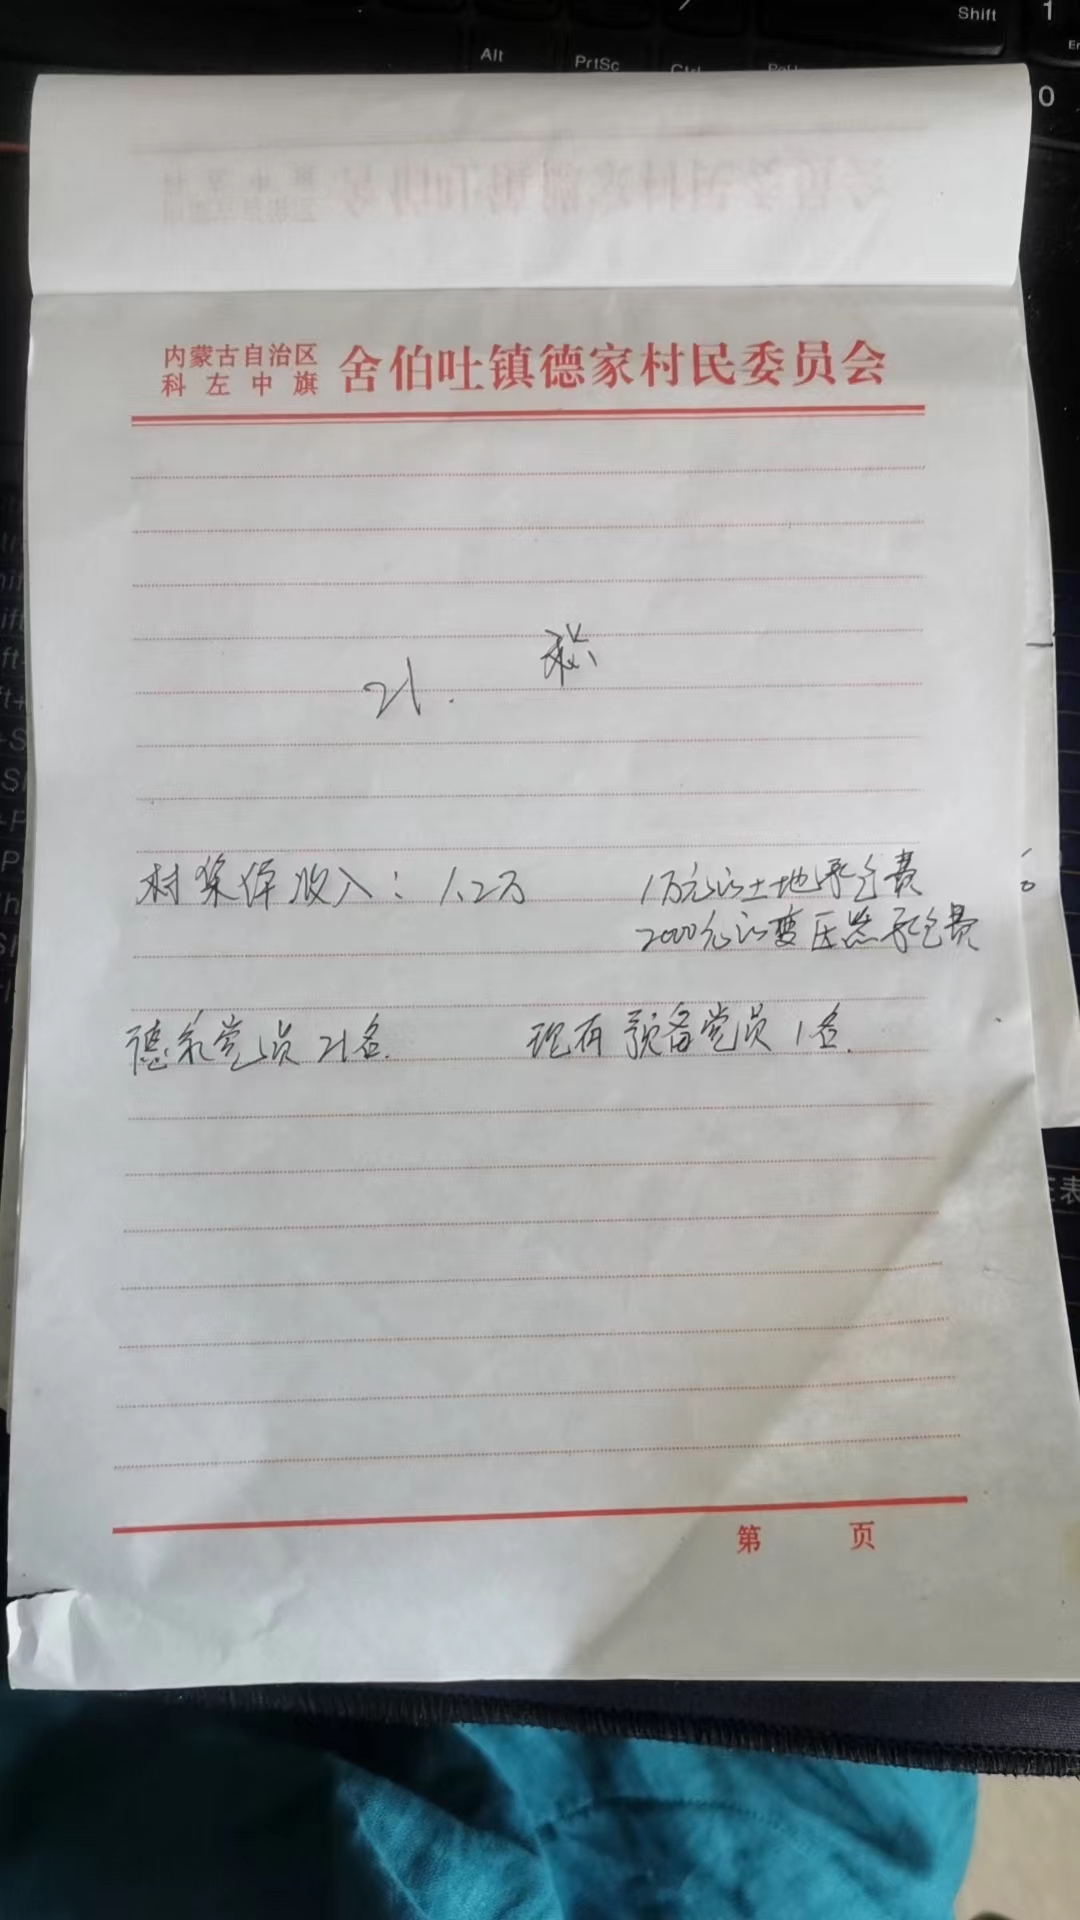 Shift
1
Alt
PrtSc
Ctrl
0
内蒙古自治区
科左中旗
舍伯吐镇德家村民委员会
21.
村集体收入：1.2万 1万元的土地承包费
2000元的变压器承包费
德家党员21名. 现有预备党员1名.
第 页